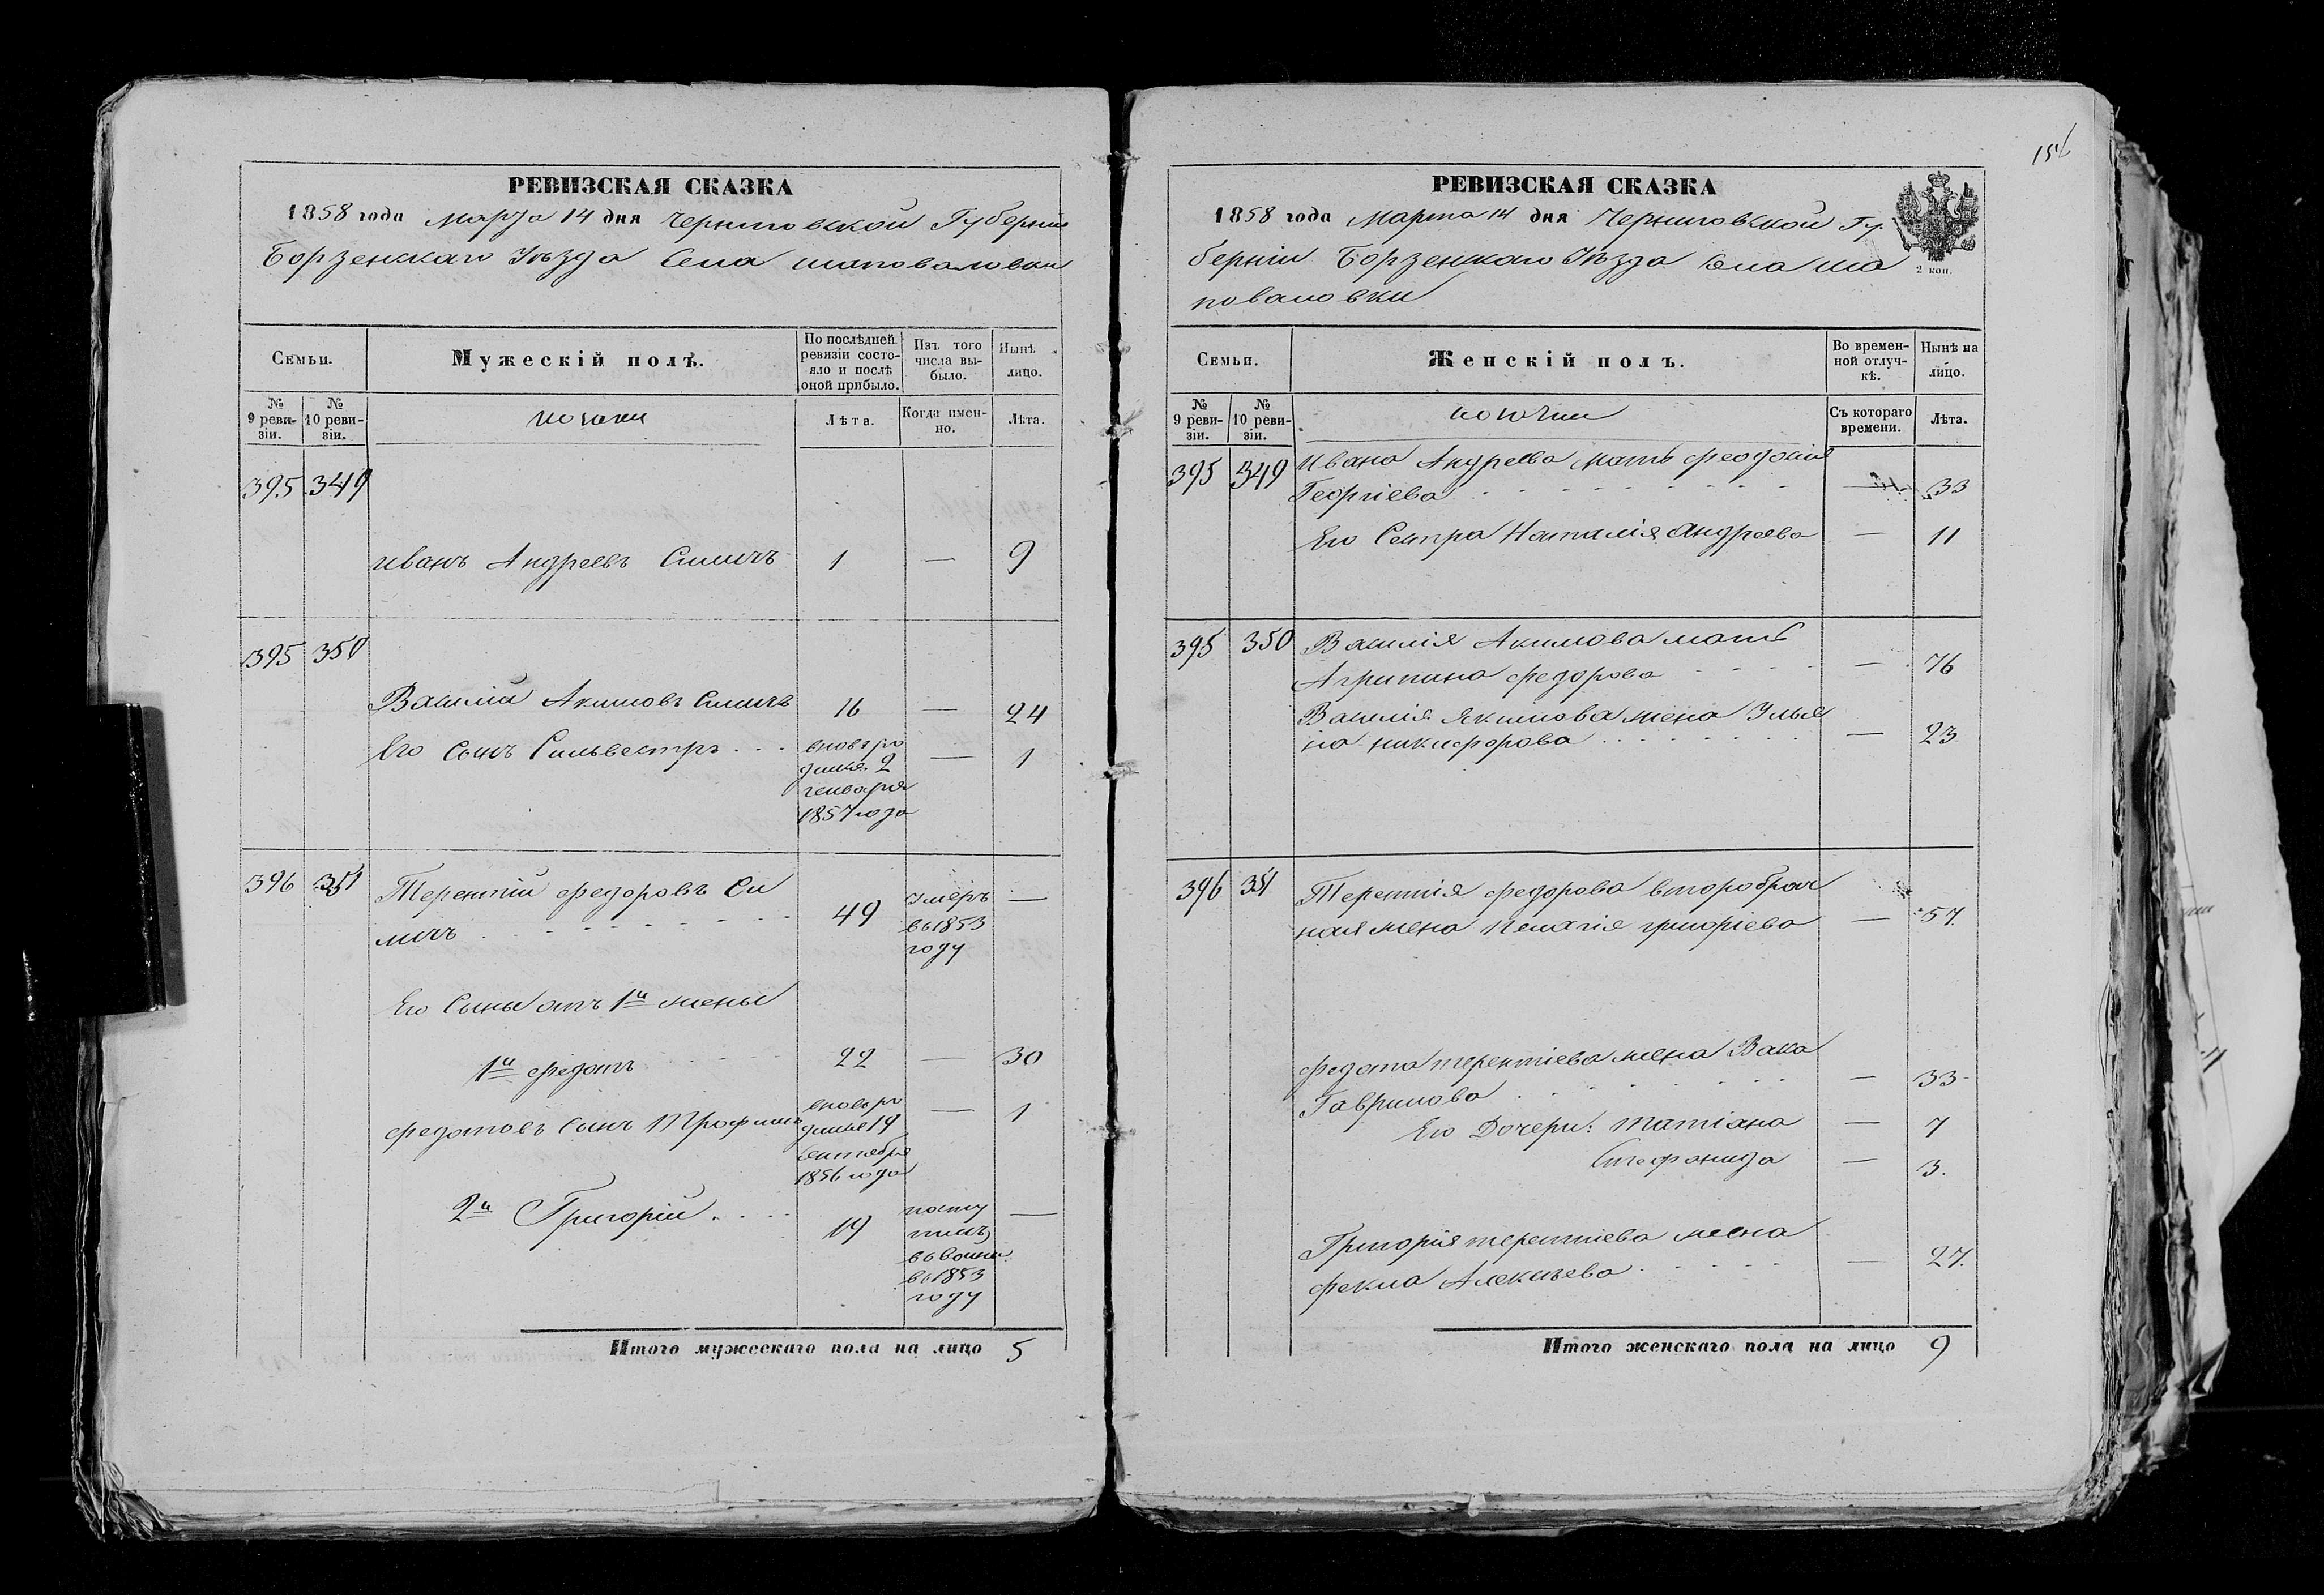 РЕВИЗСКАЯ СКАЗКА
1858 года Марта 14 дня Черниговской Губерніи
Борзенскаго Уѣзда Села Шаповаловки
Семьи.
Мужескій полъ.
По послѣдней ревизіи состояло и послѣ оной прибыло.
Изъ того числа выбыло.
Нынѣ лицо.
№ 9 ревизіи.
№ 10 ревизіи.
козаки
Лѣта.
Когда именно.
Лѣта.
395 349
Иванъ Андреевъ Силичъ 1 — 9
395 350
Василій Акимовъ Силичъ 16 — 24
Его Сынъ Сильвестръ . . . — 1
вновь ро
дился 2
генваря
1857 года
396 351 Терентій Федоровъ Си
личъ 49 —
умеръ
въ 1853
году
Его Сыны отъ 1й жены
1й Федотъ 22 — 30
Федотовъ сынъ Трофимъ — 1
вновь ро
дился 19
сентября
1856 года
2й Григорій . . . 19 —
посту
пилъ
въ воины
въ 1853
году
Итого мужескаго пола на лицо 5
156
РЕВИЗСКАЯ СКАЗКА
1858 года Марта 14 дня Черниговской Гу
берніи Борзенскаго Уѣзда Села Ша
поваловки
2 коп.
Семьи.
Женскій полъ.
Во временной отлучкѣ.
Нынѣ на лицо.
№ 9 ревизіи.
№ 10 ревизіи.
козачки
Съ котораго времени.
Лѣта.
395 349 Ивана Андреева мать Феодосія
Георгіева — 33
Его Сестра Наталія Андреева — 11
395 350 Василія Акимова мать
Агрипина Федорова — 76
Василія Якимова жена Улья
на Никифорова — 23
396 351 Терентія Федорова второбрач
ная жена Пелагія Григоріева — 57.
Федота Терентіева жена Васса
Гаврилова — 33
Его Дочери: Татіана — 7
Стефанида — 3.
Григорія Терентіева жена
Фекла Алексѣева — 27.
Итого женскаго пола на лицо 9